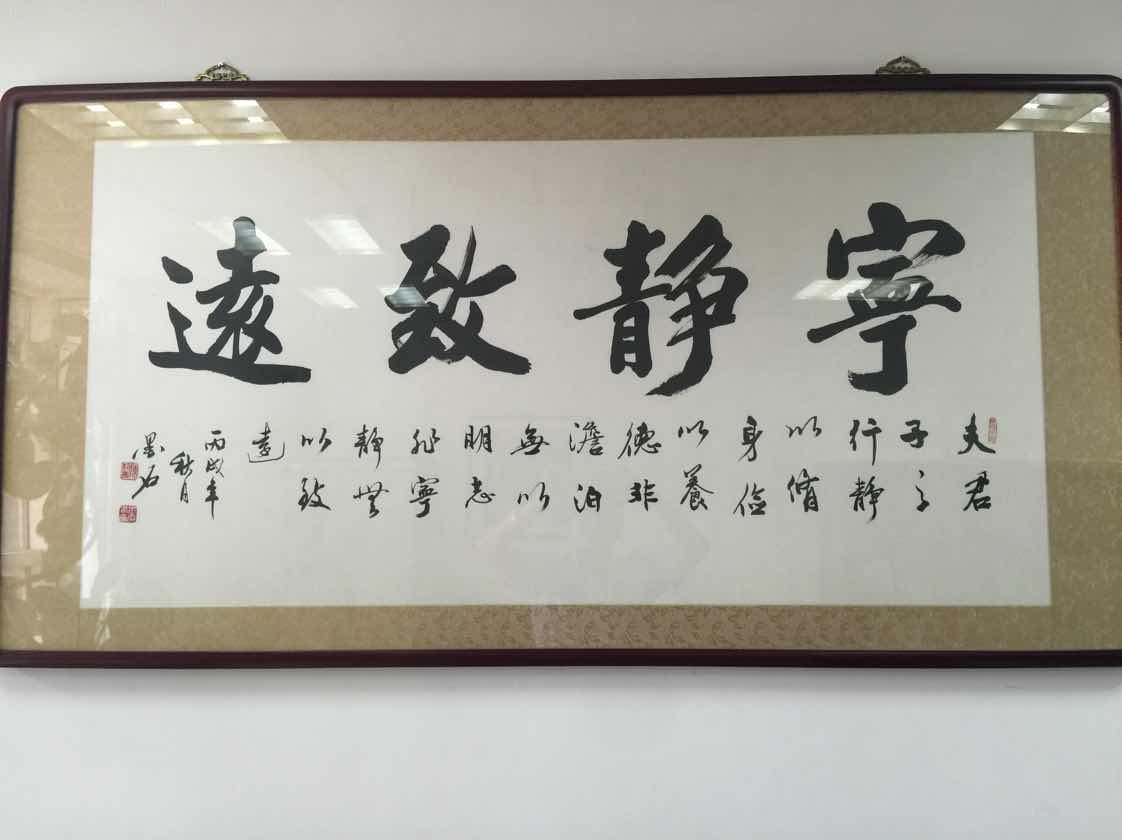 寧静致遠
夫君
子之
行静
以脩
身儉
以養
德非
澹泊
無以
明志
非寧
静無
以致
遠
丙戌年
秋月
墨石